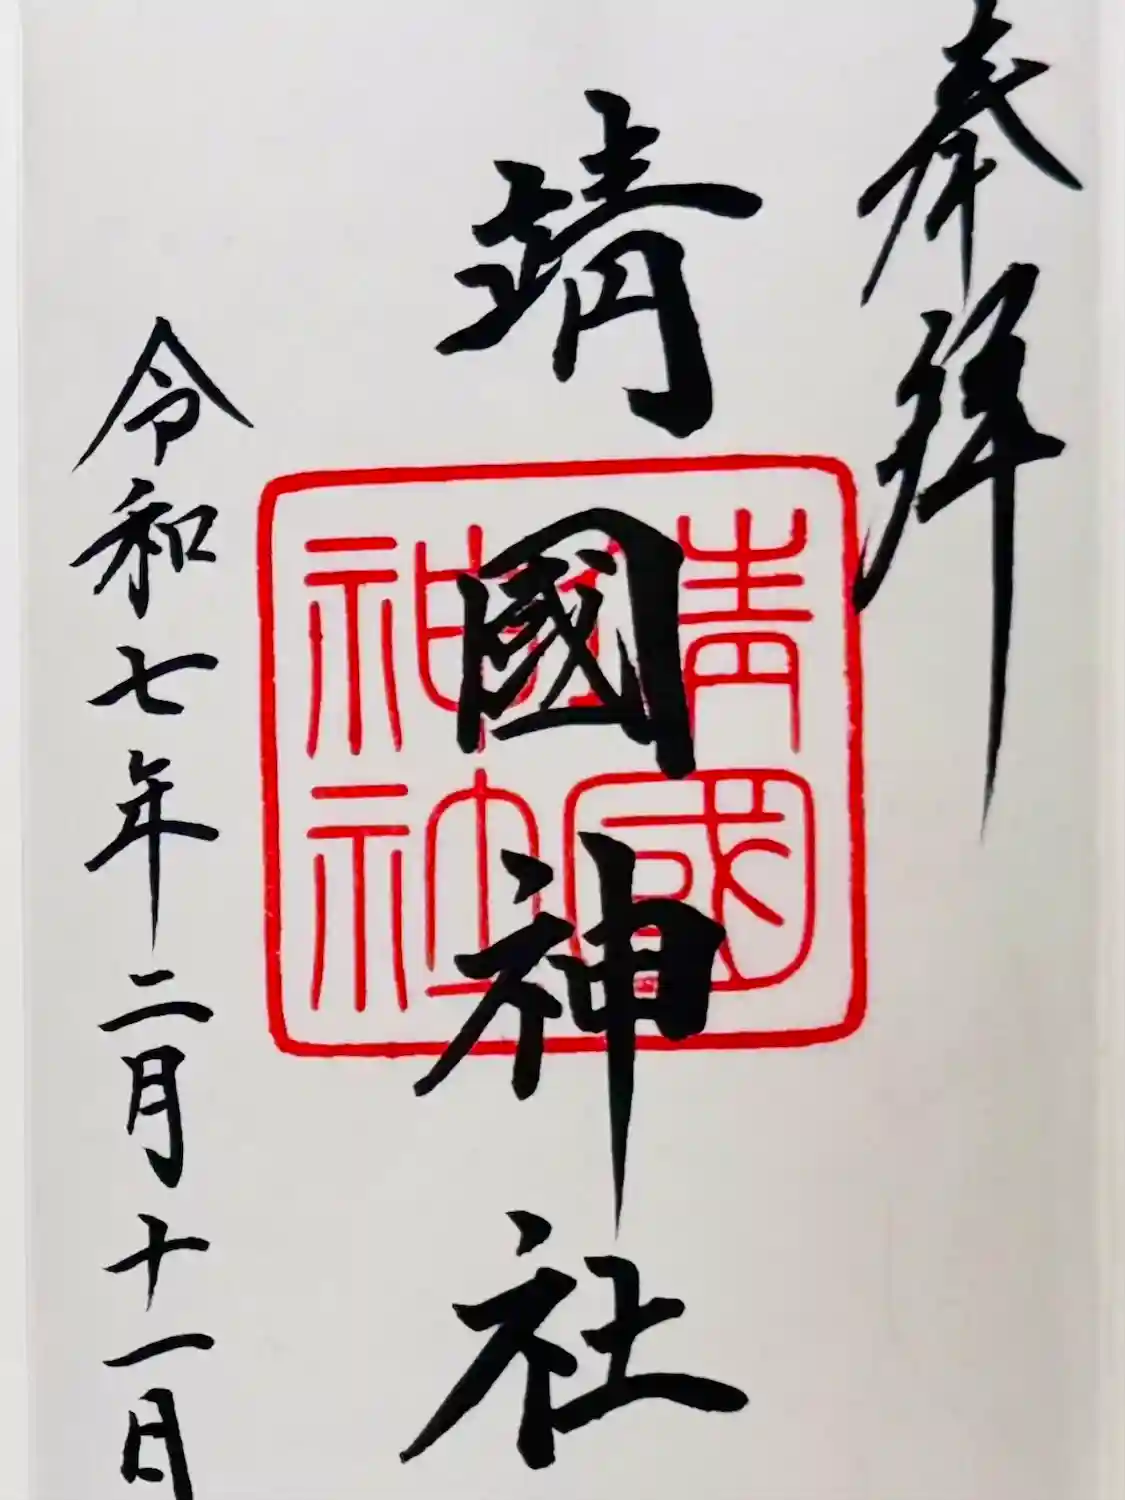 奉拜
靖國神社
靖國
神社
令和七年二月十一日